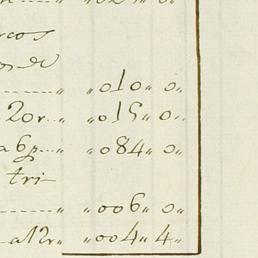 rcos
os de
„ „ 010 „ 0 „
2or.. „ „ 015 „ 0 „
a 6p.... „ „ 084 „ 0 „
tri-
„ „ 006 „ 0 „
a 12r „ „ 004 „ 4 „